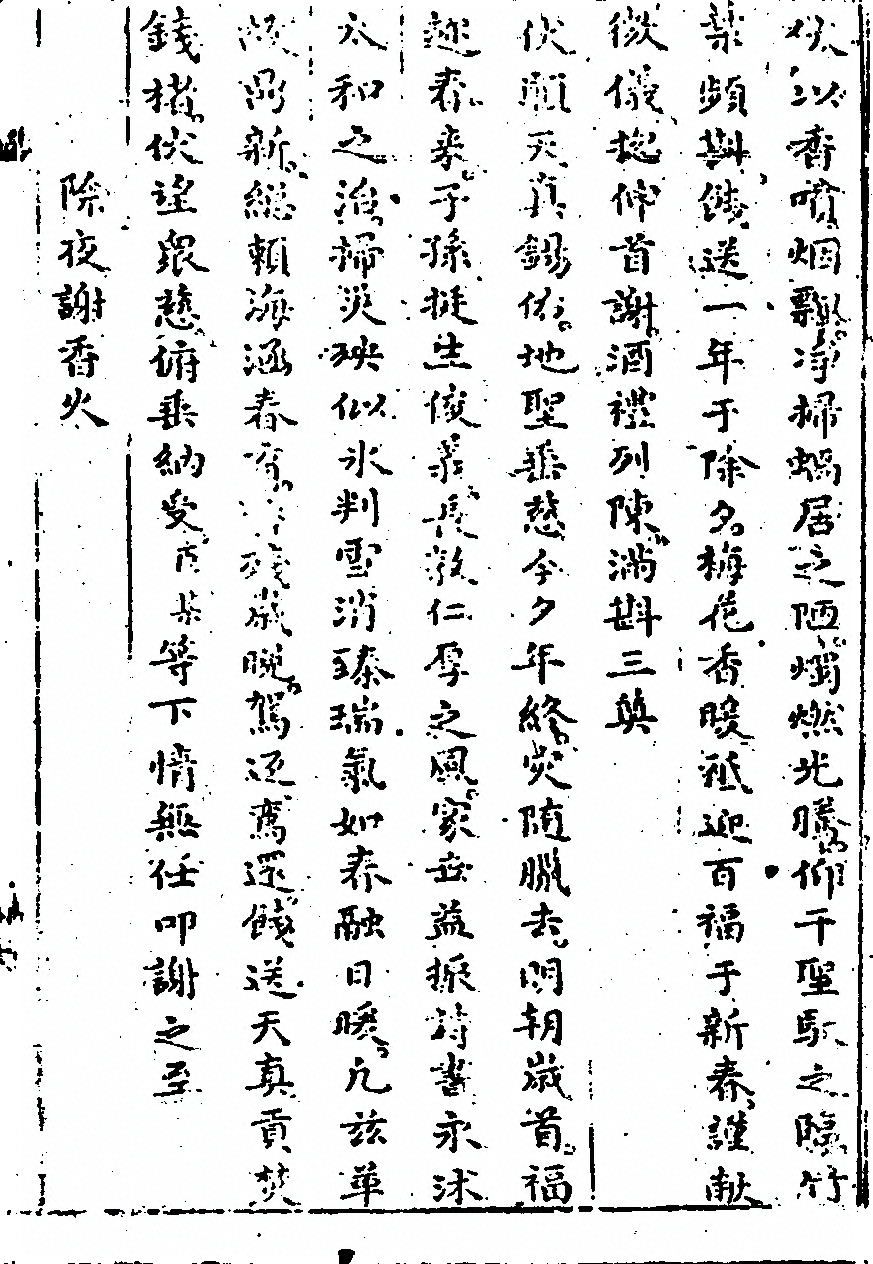 伏以香噴烟飄净掃蝸居之陋燭燃光騰仰干聖馭之臨竹
葉頻斟餞送一年于除夕梅花香暖祗迎百福于新春謹献
微儀搃伸首謝酒禮列陳满斟三奠
伏願天真錫佑地聖垂慈今夕年終灾随臘去明朝歲首福
趂春来子孫挺生俊乂長敦仁厚之風家世益振詩書永沐
太和之治掃災殃似氷判雪消臻瑞氣如春融日暖凡兹革
故鼎新總頼海涵春育殘歲晚駕迓鸞還餞送天真貢焚
錢楮伏望衆慈俯垂納受某等下情無任叩謝之至
除夜謝香火